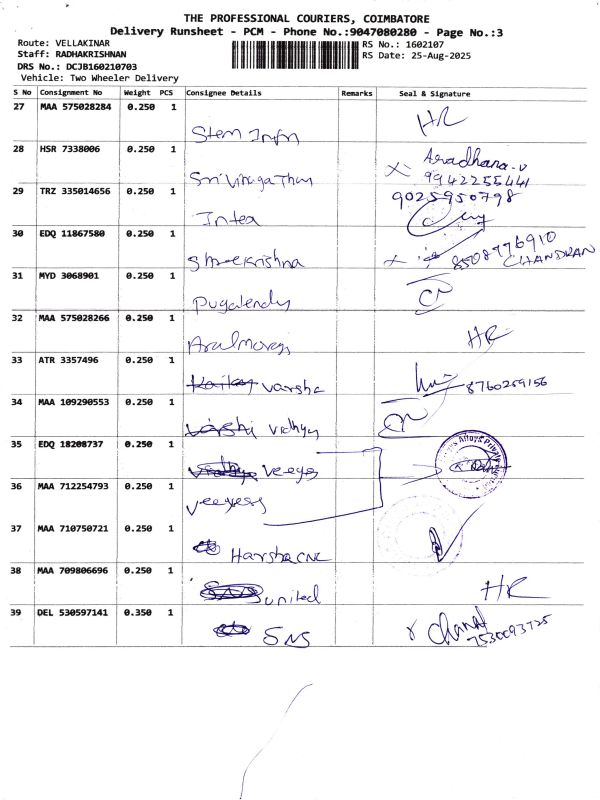 THE PROFESSIONAL COURIERS, COIMBATORE
Delivery Runsheet - PCM - Phone No.:9047080280 - Page No.:3
Route: VELLAKINAR
RS No.: 1602107
Staff: RADHAKRISHNAN
RS Date: 25-Aug-2025
DRS No.: DCJB160210703
Vehicle: Two Wheeler Delivery
S No Consignment No Weight PCS Consignee Details Remarks Seal & Signature
27 MAA 575028284 0.250 1
Stem HR
28 HSR 7338006 0.250 1
Aradhana.v
9942255441
29 TRZ 335014656 0.250 1
9025950798
Intea
30 EDQ 11867580 0.250 1
Shreekrishna 8508776910
CHANDRAN
31 MYD 3068901 0.250 1
Pugalendy
32 MAA 575028266 0.250 1
HR
33 ATR 3357496 0.250 1
varsha 8760259156
34 MAA 109290553 0.250 1
Vidhya
35 EDQ 18208737 0.250 1
36 MAA 712254793 0.250 1
37 MAA 710750721 0.250 1
Harsha CNC
38 MAA 709806696 0.250 1
united HR
39 DEL 530597141 0.350 1
SNS
7530093725